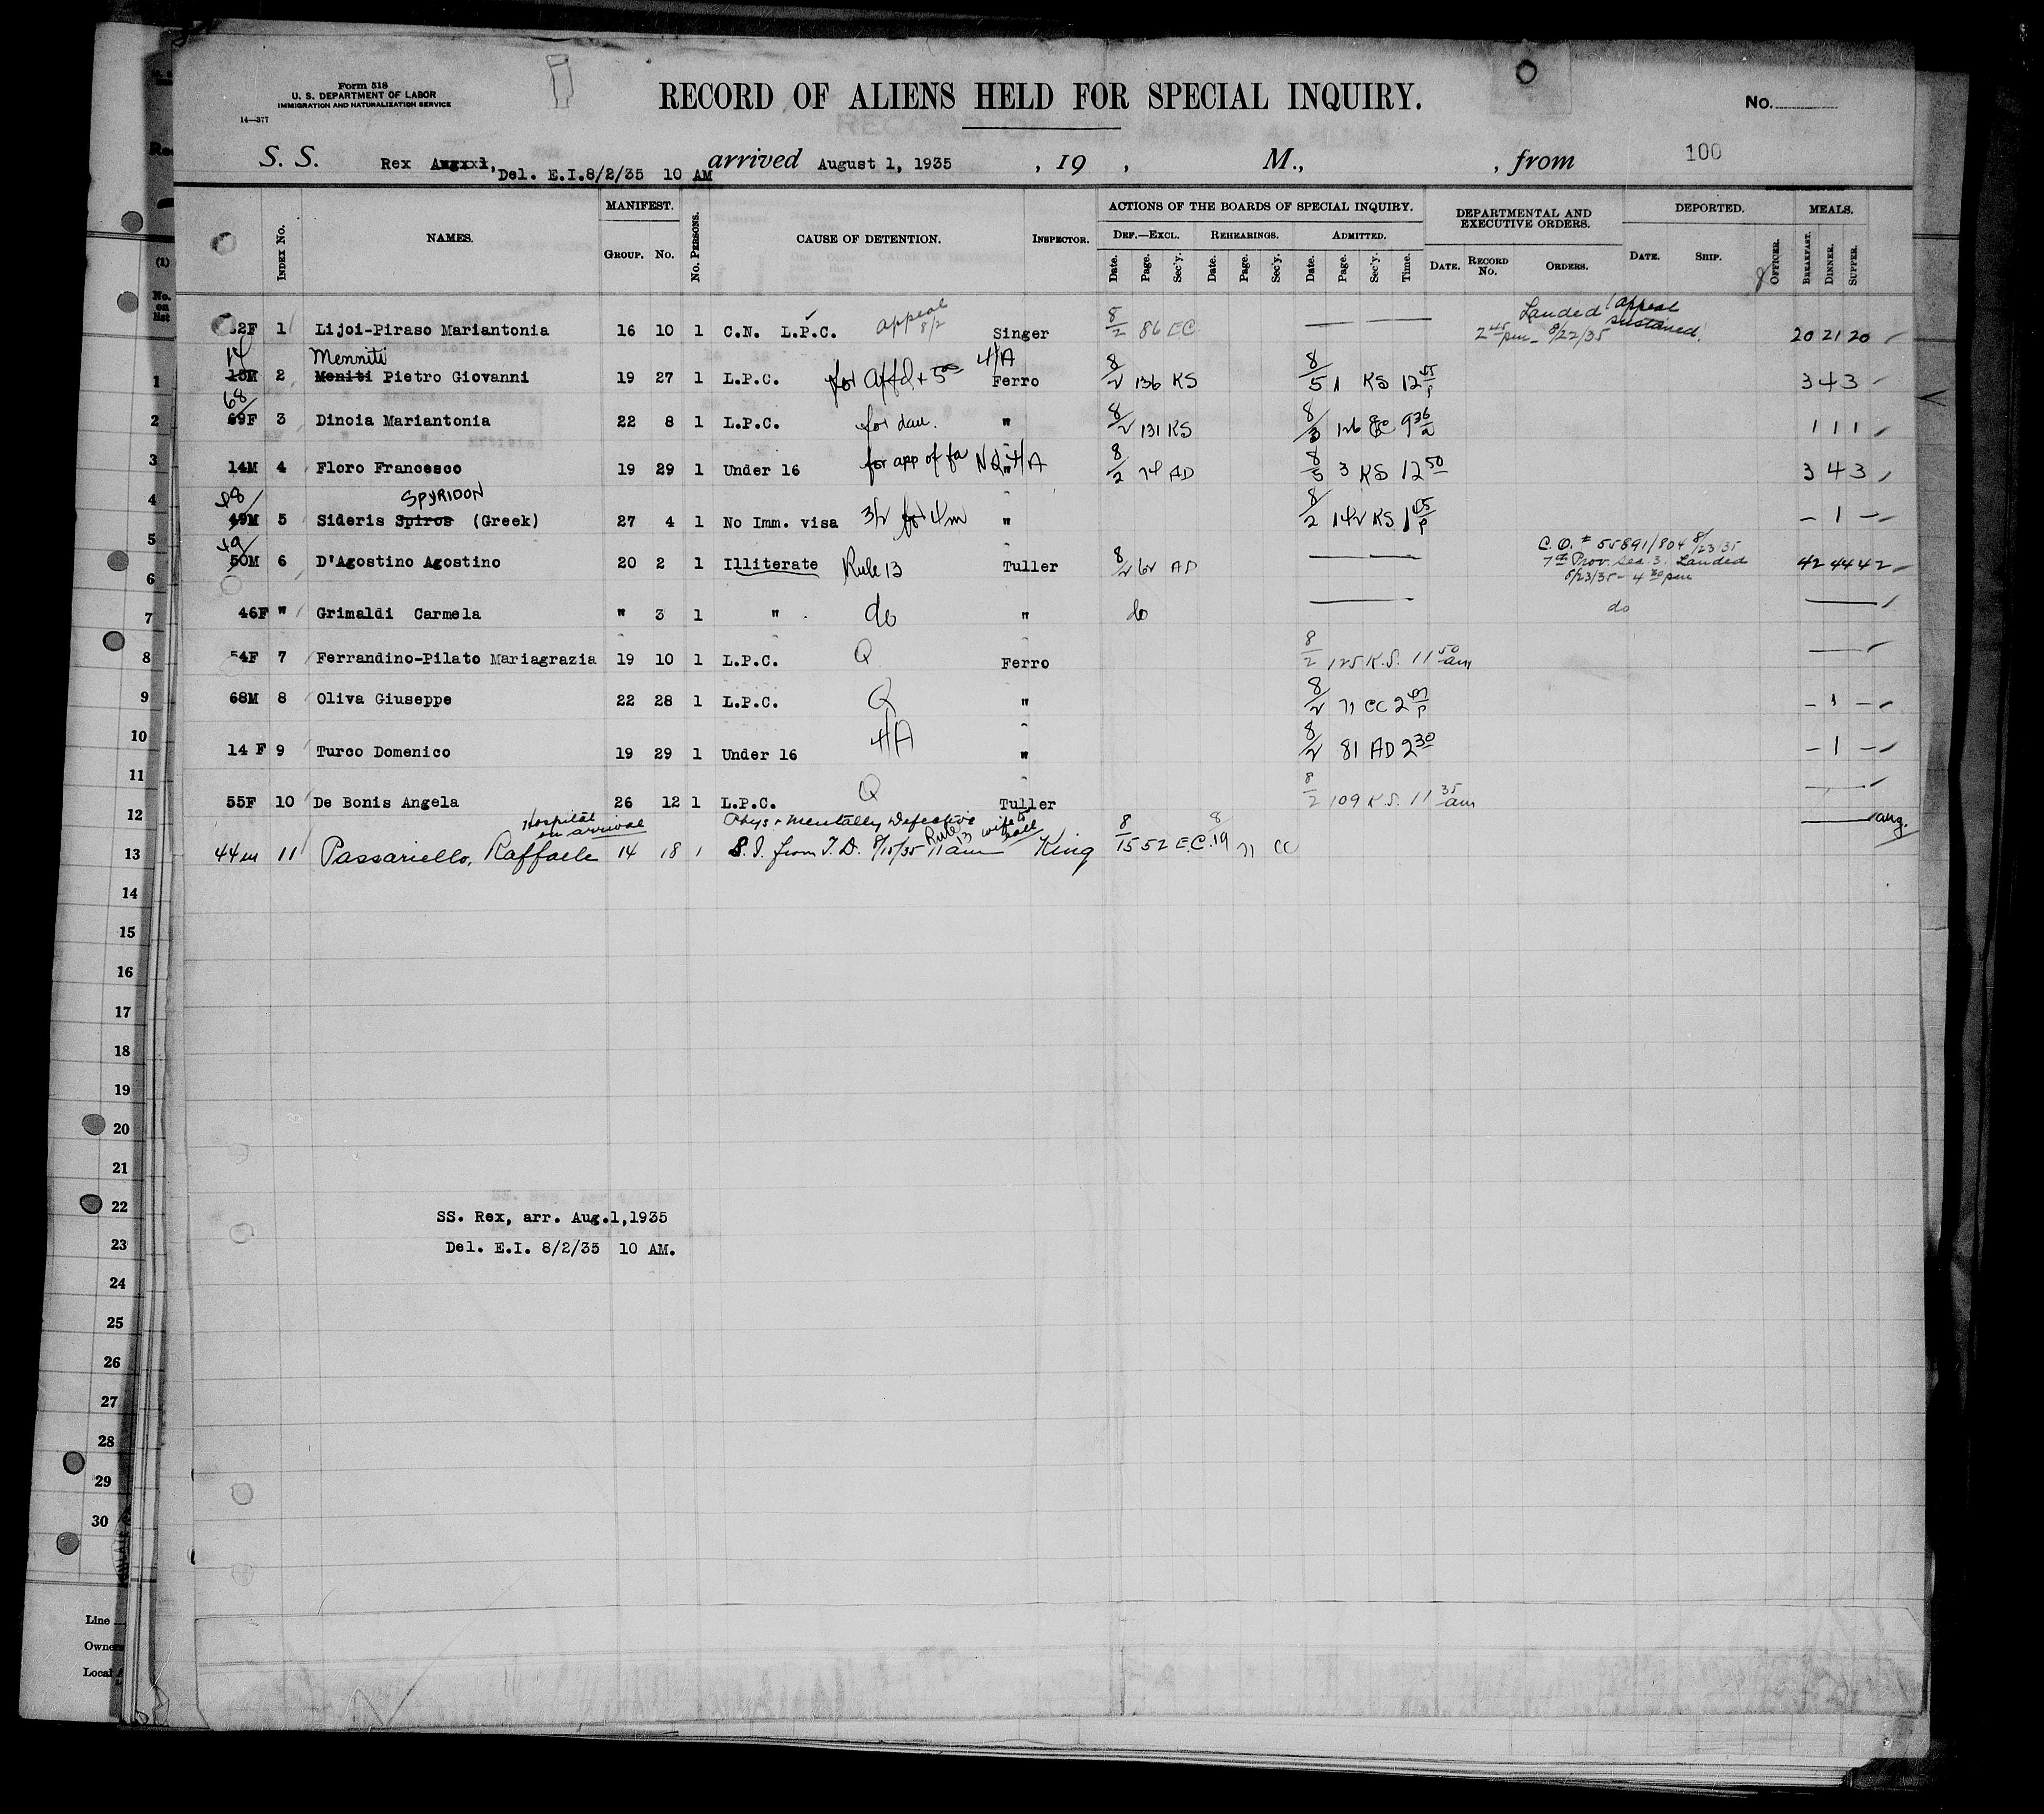 Form 518
U. S. DEPARTMENT OF LABOR
IMMIGRATION AND NATURALIZATION SERVICE
14—377
RECORD OF ALIENS HELD FOR SPECIAL INQUIRY.
No.
S. S. Rex Aug 1, Del. E.I.8/2/35 10 AM arrived August 1, 1935 , 19 , M., , from 100
INDEX No. NAMES. MANIFEST. GROUP. No. No. PERSONS. CAUSE OF DETENTION. INSPECTOR. ACTIONS OF THE BOARDS OF SPECIAL INQUIRY. DEF.—EXCL. REHEARINGS. ADMITTED. DEPARTMENTAL AND EXECUTIVE ORDERS. DEPORTED. MEALS.
Date. Page. Sec'y. Date. Page. Sec'y. Date. Page. Sec'y. Time. DATE. RECORD No. ORDERS. DATE. SHIP. OFFICER. BREAKFAST. DINNER. SUPPER.
2F 1 Lijoi-Piraso Mariantonia 16 10 1 C.N. L.P.C. appeal 8/2 Singer 8/2 86 EC — — Landed appeal sustained. 2 45 pm - 8/22/35 20 21 20
14 Menniti
15M 2 Meniti Pietro Giovanni 19 27 1 L.P.C. for affd + 5 00 H/A Ferro 8/2 136 KS 8/5 1 KS 12 45 P 3 4 3
68
69F 3 Dinoia Mariantonia 22 8 1 L.P.C. for dau. " 8/2 131 KS 8/3 126 EC 9 36 1 1 1
14M 4 Floro Francesco 19 29 1 Under 16 for app of fa H/A " 8/2 74 AD 8/5 3 KS 12 50 3 4 3
48 SPYRIDON
49M 5 Sideris Spiros (Greek) 27 4 1 No Imm. visa " 8/2 142 KS 1 45 P — 1 —
49
50M 6 D'Agostino Agostino 20 2 1 Illiterate Rule 13 Tuller 8/2 62 AD — — C.O. # 55891/804 8/23/35 7th Prov. Sec. 3. Landed 8/23/35 - 4 30 pm 42 44 42
46F " Grimaldi Carmela " 3 1 " do " do — — do —
54F 7 Ferrandino-Pilato Mariagrazia 19 10 1 L.P.C. Q Ferro 8/2 125 K.S. 11 50 am —
68M 8 Oliva Giuseppe 22 28 1 L.P.C. Q " 8/2 71 CC 2 P — 1 —
14 F 9 Turco Domenico 19 29 1 Under 16 H/A " 8/2 81 AD 2 30 — 1 —
55F 10 De Bonis Angela 26 12 1 L.P.C. Q Tuller 8/2 109 K.S. 11 35 am —
Hospital on arrival Phys & mentally defective Rule 13 wife to call
44m 11 Passariello, Raffaele 14 18 1 S.I. from T.D. 8/15/35 11 am King 8/15 52 E.C. 8/19 71 CC
SS. Rex, arr. Aug.1,1935
Del. E.I. 8/2/35 10 AM.
(1)
No. on list
1
2
3
4
5
6
7
8
9
10
11
12
13
14
15
16
17
18
19
20
21
22
23
24
25
26
27
28
29
30
Line
Owners
Local